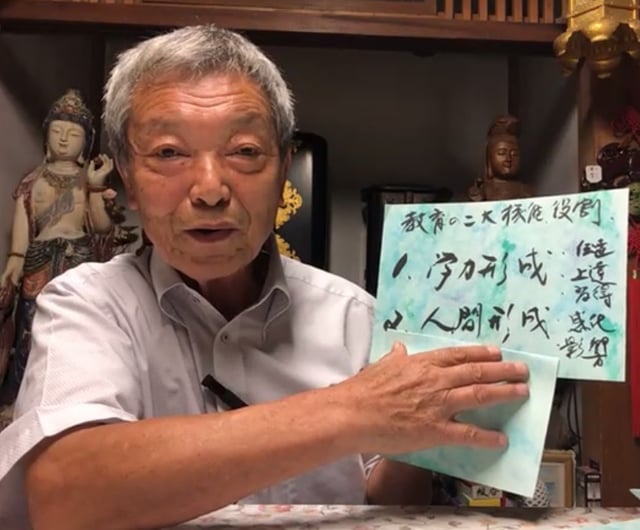 教育の二大機能、役割
1. 学力形成
・伝達
・上達
2. 人間形成
・感化
・影響